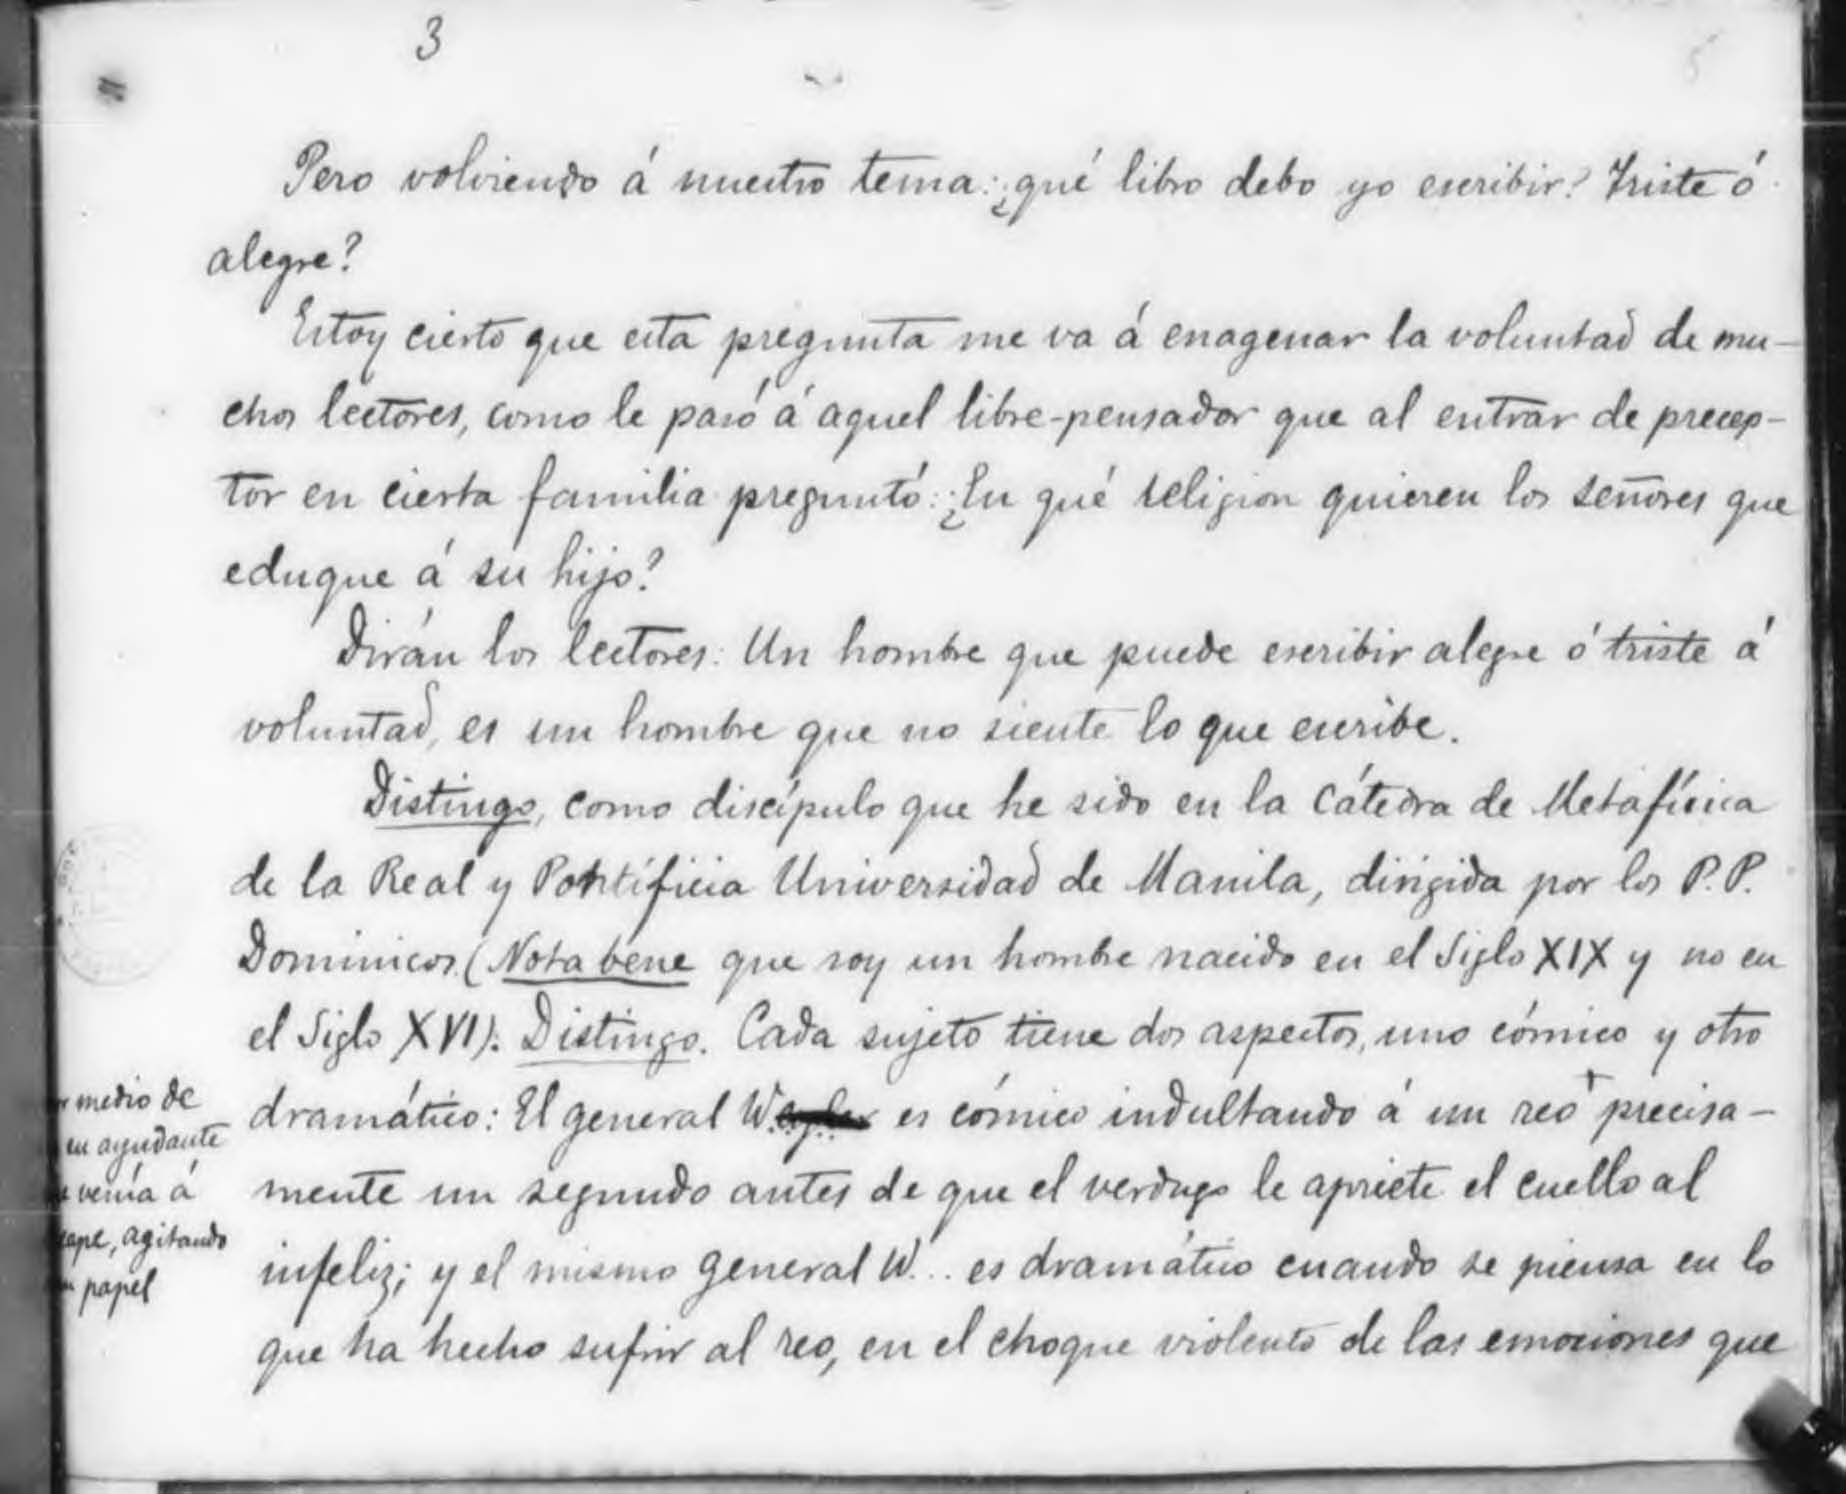 3
Pero volviendo á nuestro tema: ¿qué libro debo yo escribir? Triste ó
alegre?
Estoy cierto que esta pregunta me va á enagenar la voluntad de mu-
chos lectores, como le pasó á aquel libre-pensador que al entrar de precep-
tor en cierta familia preguntó: ¿En qué religion quieren los señores que
eduque á su hijo?
Dirán los lectores: Un hombre que puede escribir alegre ó triste á
voluntad, es un hombre que no siente lo que escribe.
Distingo, como discípulo que he sido en la Cátedra de Metafísica
de la Real y Pontíficia Universidad de Manila, dirigida por los P.P.
Dominicos (Nota bene que soy un hombre nacido en el Siglo XIX y no en
el Siglo XVI): Distingo. Cada sujeto tiene dos aspectos, uno cómico y otro
dramático: El general W... es cómico indultando á un reo + precisa-
mente un segundo antes de que el verdugo le apriete el cuello al
infeliz; y el mismo general W... es dramático cuando se piensa en lo
que ha hecho sufrir al reo, en el choque violento de las emociones que
medio de
ayudante
venía á
agitando
papel